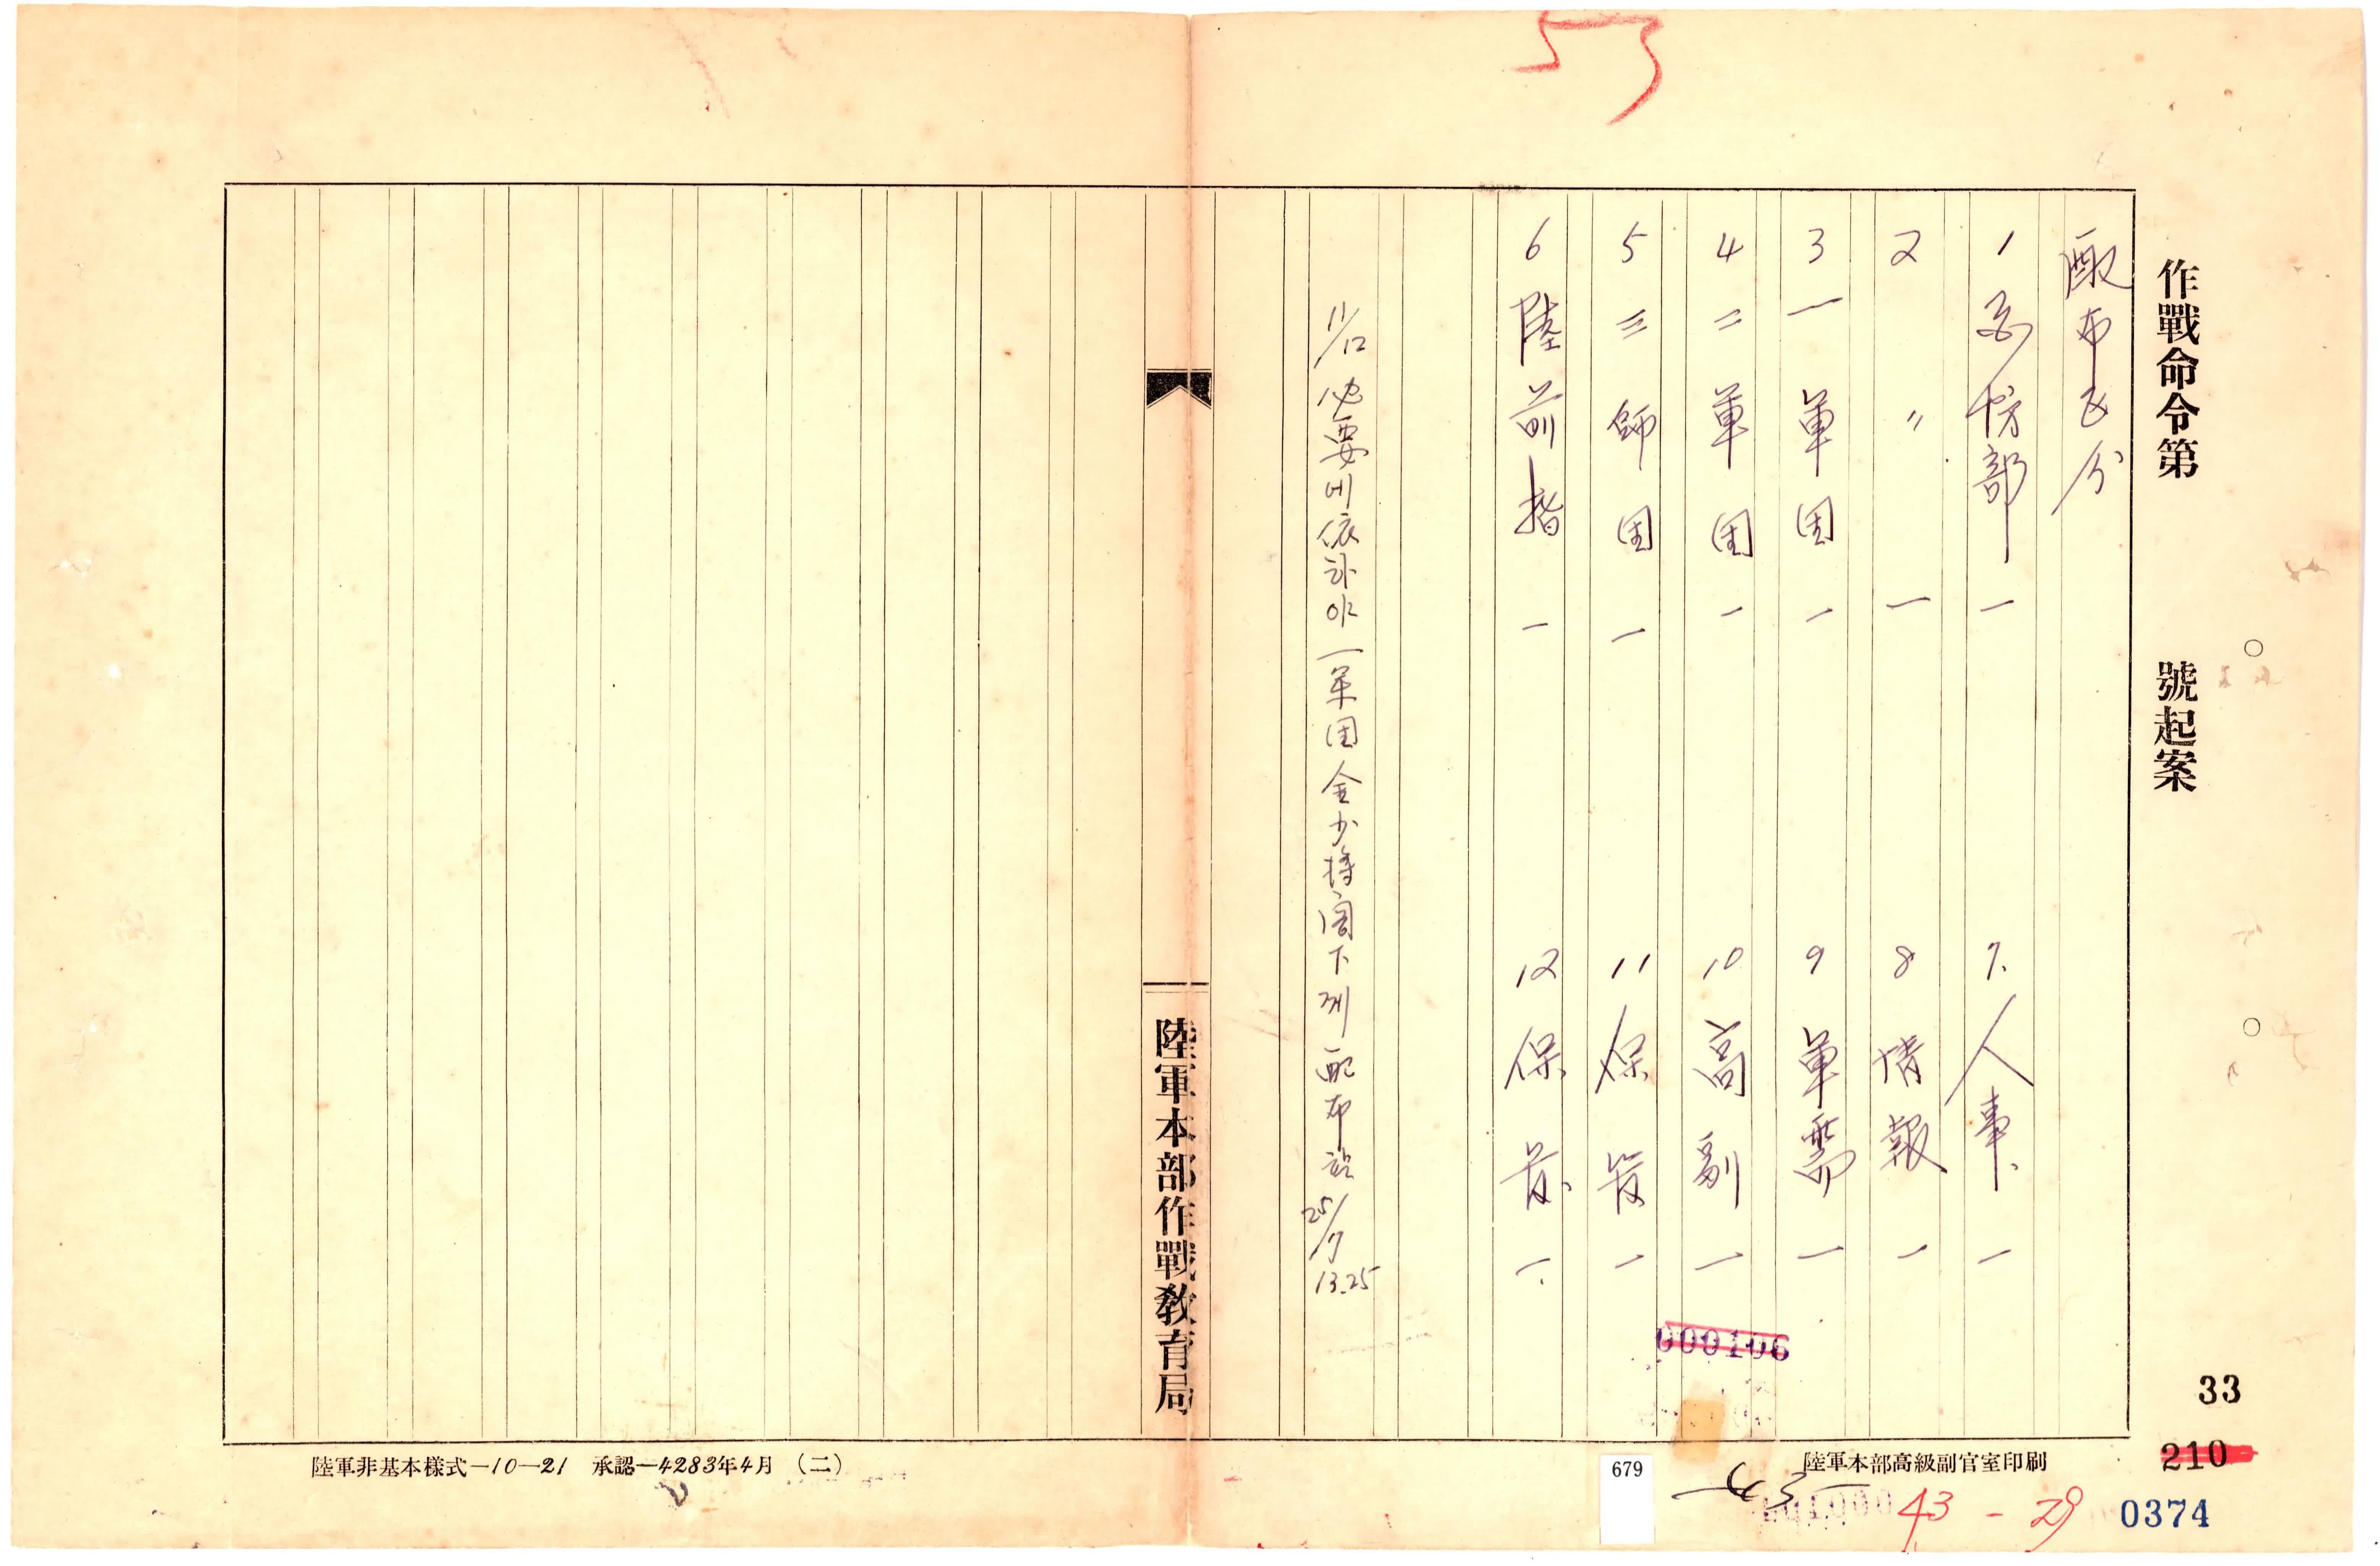 53
作戰命令第 號起案
配布区分
1 国防部 一
2 〃 一
3 一軍団 一
4 二軍団 一
5 三師団 一
6 陸前指 一
7. 人事 一
8 情報 一
9 軍需 一
10 高副 一
11 保管 一
12 保 一
11/12 必要에依하야 一軍団 金少将閣下께 配布 25/7 13.25
陸軍本部作戰教育局
000106
33
210
陸軍非基本樣式—10—21 承認—4283年4月 (二)
679
陸軍本部高級副官室印刷
43
43 - 29
0374